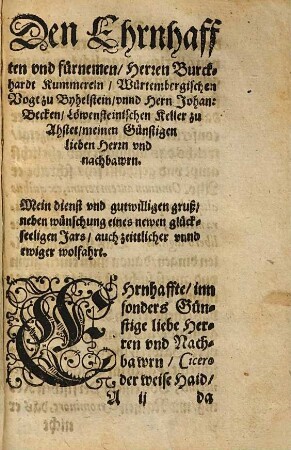 Den Ehrnhaff
ten vnd fürnemen/ Herren Burck-
hardt Kummerein/ Würtembergischen
Vogt zu Byhelstein/ vnnd Hern Johan:
Becken/ Löwensteinischen Keller zu
Ahstet/ meinen Günstigen
lieben Herrn vnd
nachbawrn.
Mein dienst vnd gutwilligen gruß/
neben wünschung eines newen glück-
seeligen Jars/ auch zeittlicher vnnd
ewiger wolfahrt.
EHrnhaffte/ inn
sonders Gün-
stige liebe Her-
ren vnd Nach-
bawrn/ Cicero
der weise Haid/
A ij da